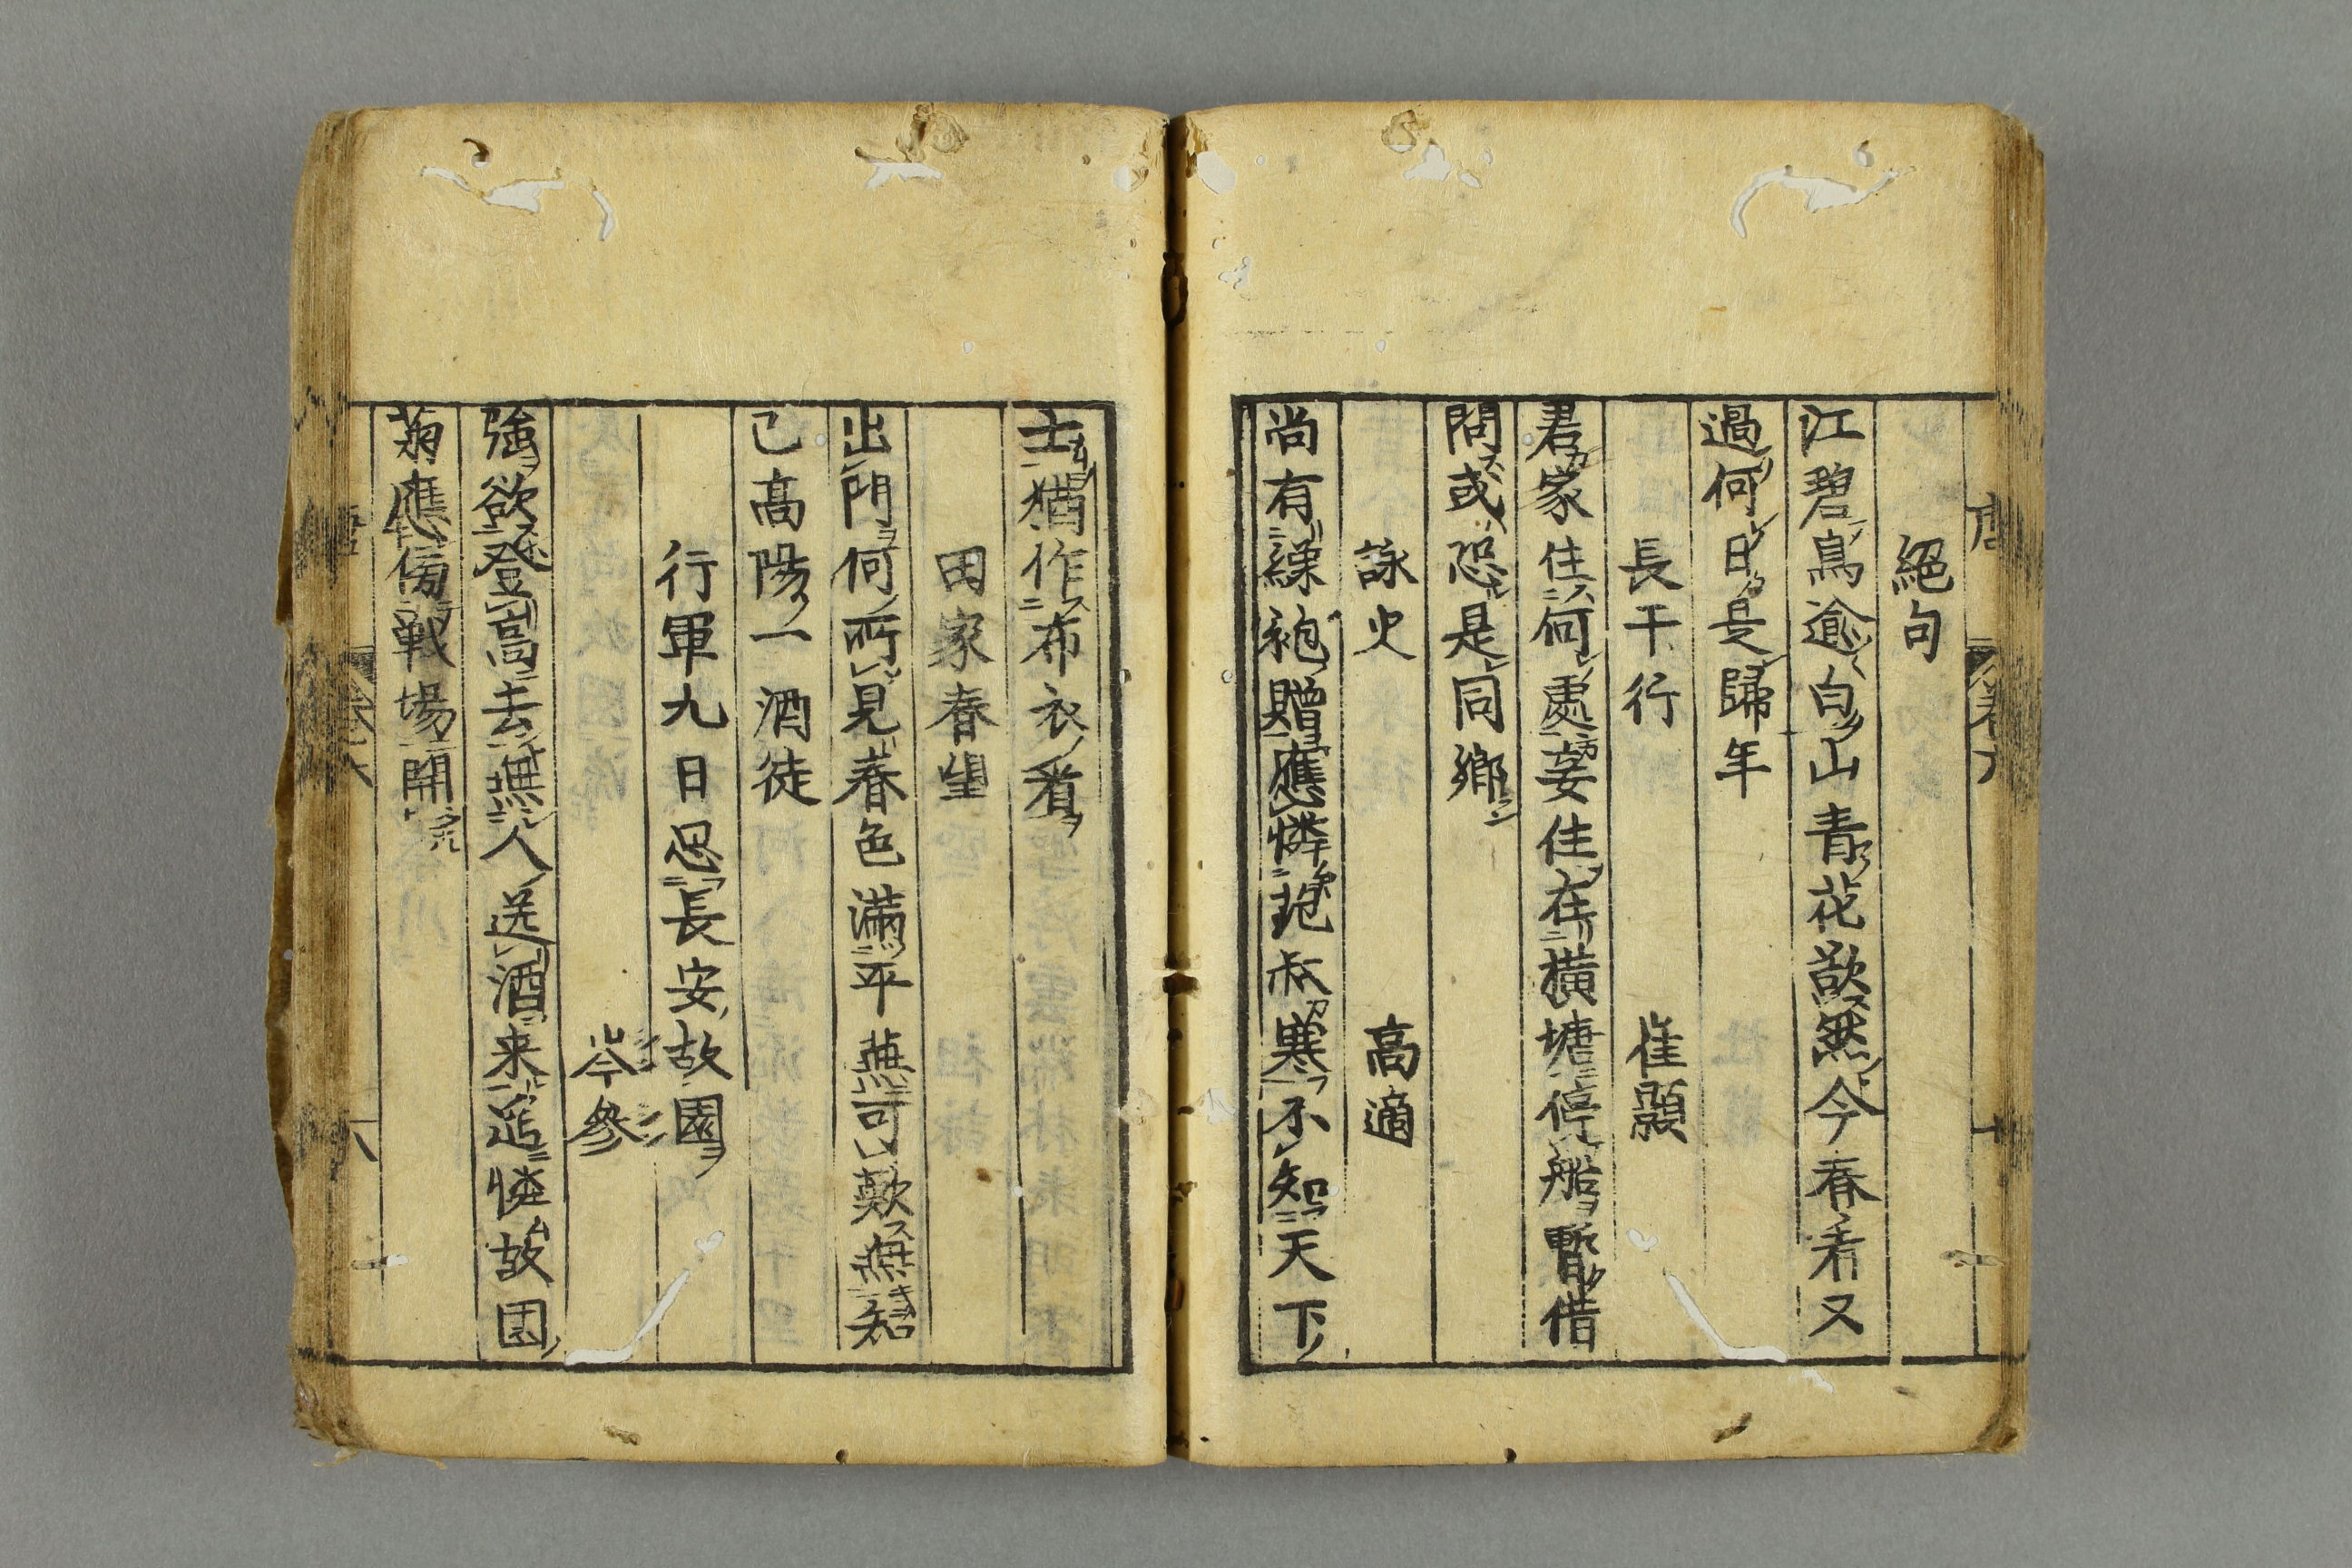 絕句
江碧鳥逾白山青花欲然今春看又
過何日是歸年
長干行 崔顥
君家住何處妾住在橫塘停船暫借
問或恐是同鄉
詠史 高適
尚有綈袍贈應憐范叔寒不知天下
士猶作布衣看
田家春望
出門何所見春色滿平蕪可歎無知
己高陽一酒徒
行軍九日思長安故園
岑參
強欲登高去無人送酒来遥憐故园
菊應傍戰場開